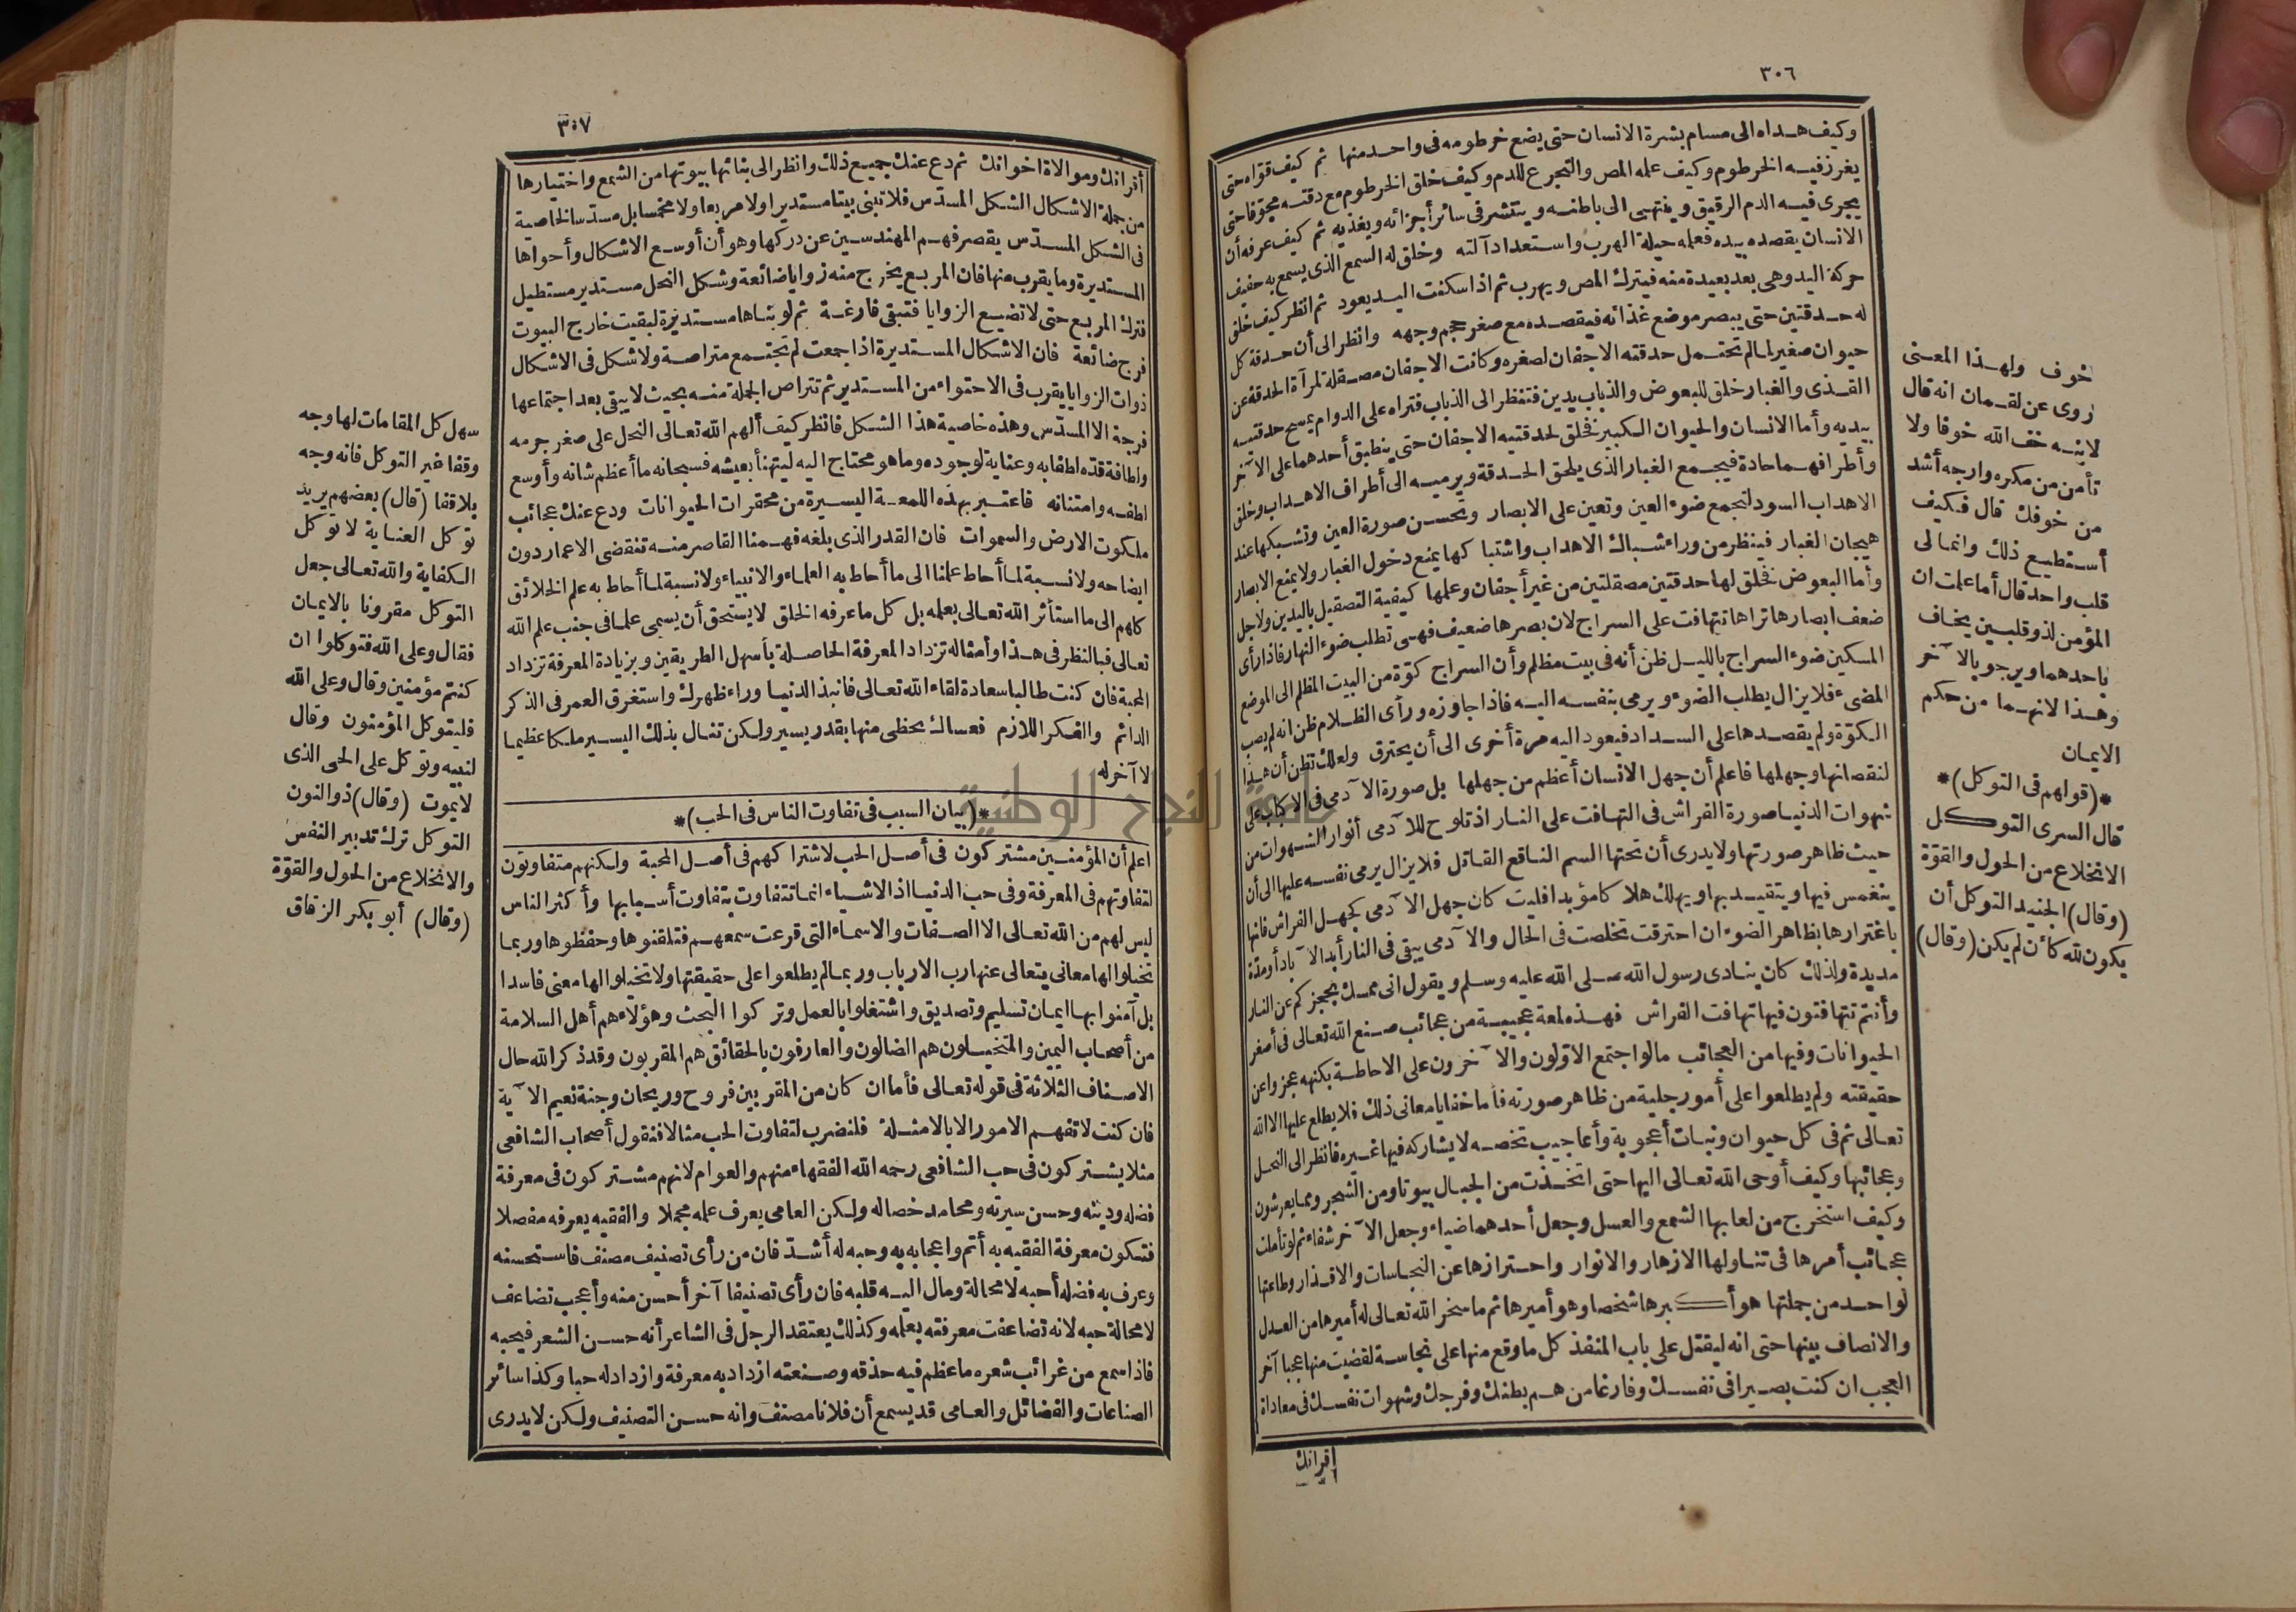 ٣٠٦
وكيف هداه الى مسام بشرة الانسان حتى يضع خرطومه فى واحد منها ثم كيف قواه حتى
يغرز فيه الخرطوم وكيف علمه المص والتجرع للدم وكيف خلق الخرطوم مع دقته مجوفا حتى
يجرى فيه الدم الرقيق وينتهى الى باطنه وينتشر فى سائر أجزائه ويغذيه ثم كيف عرفه أن
الانسان يقصده بيده فعلمه حيلة الهرب واستعداد آلته وخلق له السمع الذى يسمع به حفيف
حركة اليد وهى بعد بعيدة منه فيترك المص ويهرب ثم اذا سكنت اليد يعود ثم انظر كيف خلق
له حدقتين حتى يبصر موضع غذائه فيقصده مع صغر حجم وجهه وانظر الى أن حدقة كل
حيوان صغير لما لم تحتمل حدقته الاجفان لصغره وكانت الاجفان مصقلة لمرآة الحدقة عن
القذى والغبار خلق للبعوض والذباب يدين فتنظر الى الذباب فتراه على الدوام يمسح حدقتيه
بيديه وأما الانسان والحيوان الكبير فخلق لحدقتيه الاجفان حتى ينطبق أحدهما على الآخر
وأطرافهما حادة فيجمع الغبار الذى يلحق الحدقة ويرميه الى أطراف الاهداب وخلق
الاهداب السود لتجمع ضوء العين وتعين على الابصار وتحسن صورة العين وتشبكها عند
هيجان الغبار فينظر من وراء شباك الاهداب واشتباكها يمنع دخول الغبار ولا يمنع الابصار
وأما البعوض فخلق لها حدقتين مصقلتين من غير أجفان وعلمها كيفية التصقيل باليدين ولاجل
ضعف ابصارها تراها تتهافت على السراج لان بصرها ضعيف فهى تطلب ضوء النهار فاذا رأى
المسكين ضوء السراج بالليل ظن أنه فى بيت مظلم وأن السراج كوة من البيت المظلم الى الموضع
المضىء فلا يزال يطلب الضوء ويرمى بنفسه اليه فاذا جاوزه ورأى الظلام ظن انه لم يصب
الكوة ولم يقصدها على السداد فيعود اليه مرة أخرى الى أن يحترق ولعلك تظن أن هذا
لنقصانها وجهلها فاعلم أن جهل الانسان أعظم من جهلها بل صورة الآدمى فى الاكباب على
شهوات الدنيا صورة الفراش فى التهافت على النار اذ تلوح للآدمى أنوار الشهوات من
حيث ظاهر صورتها ولا يدرى أن تحتها السم الناقع القاتل فلا يزال يرمى نفسه عليها الى أن
ينغمس فيها ويتقيد بها ويهلك هلاكا مؤبدا فليت كان جهل الآدمى كجهل الفراش فانها
باغترارها بظاهر الضوء ان احترقت تخلصت فى الحال والآدمى يبقى فى النار أبد الآباد أو مدة
مديدة ولذلك كان ينادى رسول الله صلى الله عليه وسلم ويقول انى ممسك بحجزكم عن النار
وأنتم تتهافتون فيها تهافت الفراش فهذه لمعة عجيبة من عجائب صنع الله تعالى فى أصغر
الحيوانات وفيها من العجائب ما لو اجتمع الاولون والآخرون على الاحاطة بكنهه عجزوا عن
حقيقته ولم يطلعوا على أمور جلية من ظاهر صورته فأما خفايا معانى ذلك فلا يطلع عليها الا الله
تعالى ثم فى كل حيوان ونبات أعجوبة وأعاجيب تخصه لا يشاركه فيها غيره فانظر الى النحل
وعجائبها وكيف أوحى الله تعالى اليها حتى اتخذت من الجبال بيوتا ومن الشجر ومما يعرشون
وكيف استخرج من لعابها الشمع والعسل وجعل أحدهما ضياء وجعل الآخر شفاء ثم لو تأملت
عجائب أمرها فى تناولها الازهار والانوار واحترازها عن النجاسات والاقذار وطاعتها
لواحد من جملتها هو أكبرها شخصا وهو أميرها ثم ما سخر الله تعالى له أميرها من العدل
والانصاف بينها حتى انه ليقتل على باب المنفذ كل ما وقع منها على نجاسة لقضيت منها عجبا آخر
العجب ان كنت بصيرا فى نفسك وفارغا من هم بطنك وفرجك وشهوات نفسك فى معاداة
اقرانك
خوف ولهذا المعنى
روى عن لقمان انه قال
لابنه خف الله خوفا ولا
تأمن من مكره وارجه أشد
من خوفك قال فكيف
أستطيع ذلك وانما لى
قلب واحد قال أما علمت ان
المؤمن لذو قلبين يخاف
باحدهما ويرجو بالآخر
وهذا لانهما من حكم
الايمان
*(قولهم فى التوكل)*
قال السرى التوكل
الانخلاع من الحول والقوة
(وقال) الجنيد التوكل أن
يكون لله كأن لم يكن (وقال)
٣٠٧
أقرانك وموالاة اخوانك ثم دع عنك جميع ذلك وانظر الى بنائها بيوتها من الشمع واختيارها
من جملة الاشكال الشكل المسدس فلا تبنى بيتا مستديرا ولا مربعا ولا مخمسا بل مسدسا لخاصية
فى الشكل المسدس يقصر فهم المهندسين عن دركها وهو أن أوسع الاشكال وأحواها
المستديرة وما يقرب منها فان المربع يخرج منه زوايا ضائعة وشكل النحل مستدير مستطيل
فترك المربع حتى لا تضيع الزوايا فتبقى فارغة ثم لو بناها مستديرة لبقيت خارج البيوت
فرج ضائعة فان الاشكال المستديرة اذا جمعت لم تجتمع متراصة ولا شكل فى الاشكال
ذوات الزوايا يقرب فى الاحتواء من المستدير ثم تتراص الجملة منه بحيث لا يبقى بعد اجتماعها
فرجة الا المسدس وهذه خاصية هذا الشكل فانظر كيف ألهم الله تعالى النحل على صغر جرمه
ولطافة قده لطفا به وعناية لوجوده وما هو محتاج اليه ليتهنأ بعيشه فسبحانه ما أعظم شانه وأوسع
لطفه وامتنانه فاعتبر بهذه اللمعة اليسيرة من محقرات الحيوانات ودع عنك عجائب
ملكوت الارض والسموات فان القدر الذى بلغه فهمنا القاصر منه تنقضى الاعمار دون
ايضاحه ولا نسبة لما أحاط علمنا الى ما أحاط به العلماء والانبياء ولا نسبة لما أحاط به علم الخلائق
كلهم الى ما استأثر الله تعالى بعلمه بل كل ما عرفه الخلق لا يستحق أن يسمى علما فى جنب علم الله
تعالى فبالنظر فى هذا وأمثاله تزداد المعرفة الحاصلة بأسهل الطريقين وبزيادة المعرفة تزداد
المحبة فان كنت طالبا سعادة لقاء الله تعالى فانبذ الدنيا وراء ظهرك واستغرق العمر فى الذكر
الدائم والفكر اللازم فعساك تحظى منها بقدر يسير ولكن تنال بذلك اليسير ملكا عظيما
لا آخر له
*(بيان السبب فى تفاوت الناس فى الحب)*
اعلم أن المؤمنين مشتركون فى أصل الحب لاشتراكهم فى أصل المحبة ولكنهم متفاوتون
لتفاوتهم فى المعرفة وفى حب الدنيا اذ الاشياء انما تتفاوت بتفاوت أسبابها وأكثر الناس
ليس لهم من الله تعالى الا الصفات والاسماء التى قرعت سمعهم فتلقنوها وحفظوها وربما
تخيلوا لها معانى يتعالى عنها رب الارباب وربما لم يطلعوا على حقيقتها ولا تخيلوا لها معنى فاسدا
بل آمنوا بها ايمان تسليم وتصديق واشتغلوا بالعمل وتركوا البحث وهؤلاء هم أهل السلامة
من أصحاب اليمين والمتخيلون هم الضالون والعارفون بالحقائق هم المقربون وقد ذكر الله حال
الاصناف الثلاثة فى قوله تعالى فأما ان كان من المقربين فروح وريحان وجنة نعيم الآية
فان كنت لا تفهم الامور الا بالامثلة فلنضرب لتفاوت الحب مثالا فنقول أصحاب الشافعى
مثلا يشتركون فى حب الشافعى رحمه الله الفقهاء منهم والعوام لانهم مشتركون فى معرفة
فضله ودينه وحسن سيرته ومحامد خصاله ولكن العامى يعرف علمه مجملا والفقيه يعرفه مفصلا
فتكون معرفة الفقيه به أتم واعجابه به وحبه له أشد فان من رأى تصنيف مصنف فاستحسنه
وعرف به فضله أحبه لا محالة ومال اليه قلبه فان رأى تصنيفا آخر أحسن منه وأعجب تضاعف
لا محالة حبه لانه تضاعفت معرفته بعلمه وكذلك يعتقد الرجل فى الشاعر أنه حسن الشعر فيحبه
فاذا سمع من غرائب شعره ما عظم فيه حذقه وصنعته ازداد به معرفة وازداد له حبا وكذا سائر
الصناعات والفضائل والعامى قد يسمع أن فلانا مصنف وانه حسن التصنيف ولكن لا يدرى
سهل كل المقامات لها وجه
وقفا غير التوكل فانه وجه
بلا قفا (قال) بعضهم يريد
توكل العناية لا توكل
الكفاية والله تعالى جعل
التوكل مقرونا بالايمان
فقال وعلى الله فتوكلوا ان
كنتم مؤمنين وقال وعلى الله
فليتوكل المؤمنون وقال
لنبيه وتوكل على الحى الذى
لا يموت (وقال) ذو النون
التوكل ترك تدبير النفس
والانخلاع من الحول والقوة
(وقال) أبو بكر الزقاق
جامعة النجاح الوطنية